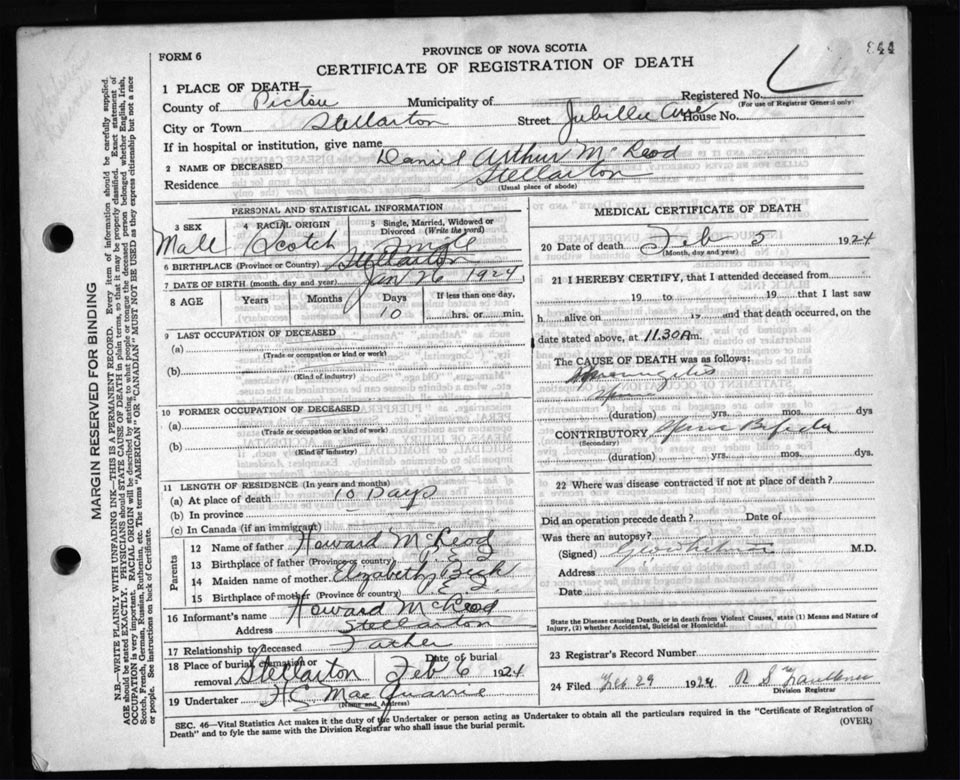 FORM 6
PROVINCE OF NOVA SCOTIA
CERTIFICATE OF REGISTRATION OF DEATH
844
1 PLACE OF DEATH
Registered No.
(For use of Registrar General only)
County of Pictou Municipality of
City or Town Stellarton Street Jubillee Ave House No.
If in hospital or institution, give name
2 NAME OF DECEASED Daniel Arthur McLeod
Residence Stellarton
(Usual place of abode)
PERSONAL AND STATISTICAL INFORMATION
3 SEX 4 RACIAL ORIGIN 5 Single, Married, Widowed or Divorced (Write the word)
Male Scotch Single
6 BIRTHPLACE (Province or Country) Stellarton
7 DATE OF BIRTH (month, day and year) Jan 26 1924
8 AGE Years Months Days If less than one day,
10 hrs. or min.
9 LAST OCCUPATION OF DECEASED
(a)
(Trade or occupation or kind or work)
(b)
(Kind of industry)
10 FORMER OCCUPATION OF DECEASED
(a)
(Trade or occupation or kind of work)
(b)
(Kind of industry)
11 LENGTH OF RESIDENCE (In years and months)
(a) At place of death 10 Days
(b) In province
(c) In Canada (if an immigrant)
Parents
12 Name of father Howard McLeod
13 Birthplace of father (Province or country)
14 Maiden name of mother Elizabeth
15 Birthplace of mother (Province or country)
16 Informant's name Howard McLeod
Address Stellarton
17 Relationship to deceased Father
18 Place of burial, cremation or removal Stellarton Date of burial Feb 6 1924
19 Undertaker H.C. MacQuarrie
(Name and Address)
MEDICAL CERTIFICATE OF DEATH
20 Date of death Feb 5 1924
(Month, day and year)
21 I HEREBY CERTIFY, that I attended deceased from
19 to 19 that I last saw
h alive on 19 and that death occurred, on
date stated above, at 11.30 A m.
The CAUSE OF DEATH was as follows:
(duration) yrs. mos. dys
CONTRIBUTORY Spina Bifida
(Secondary)
(duration) yrs. mos. dys.
22 Where was disease contracted if not at place of death?
Did an operation precede death? Date of
Was there an autopsy?
(Signed) M.D.
Address
Date
State the Disease causing Death, or in death from Violent Causes, state (1) Means and Nature of
Injury, (2) whether Accidental, Suicidal or Homicidal.
23 Registrar's Record Number
24 Filed Feb 29 1924 R S Faulkner
Division Registrar
SEC. 46—Vital Statistics Act makes it the duty of the Undertaker or person acting as Undertaker to obtain all the particulars required in the "Certificate of Registration of
Death" and to fyle the same with the Division Registrar who shall issue the burial permit. (OVER)
MARGIN RESERVED FOR BINDING
N.B.—WRITE PLAINLY WITH UNFADING INK—THIS IS A PERMANENT RECORD. Every item of information should be carefully supplied.
AGE should be stated EXACTLY. PHYSICIANS should STATE CAUSE OF DEATH in plain terms, so that it may be properly classified. Exact statement of
OCCUPATION is very important. RACIAL ORIGIN will be described by stating to what people or tongue the deceased person belonged whether English, Irish,
Scotch, French, German, Russian, Ruthenian, etc. The terms "AMERICAN" or "CANADIAN" MUST NOT BE USED as they express citizenship but not a race
or people. See instructions on back of Certificate.